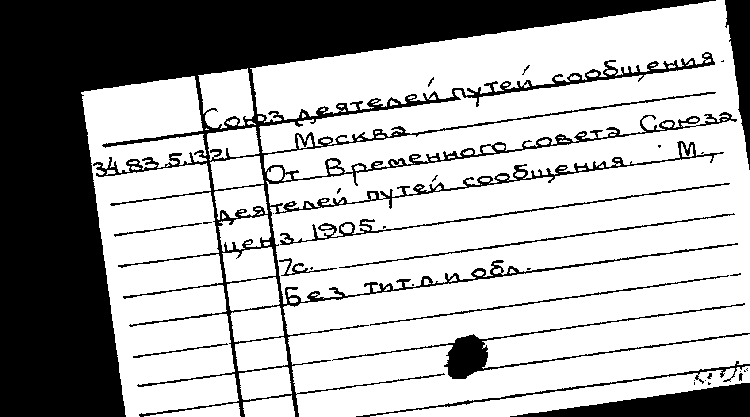 Союз деятелей путей сообщения.
Москва.
34.83.5.1321
От Временного совета Союза
деятелей путей сообщения. М.,
ценз. 1905.
7с.
Без тит.л. и обл.